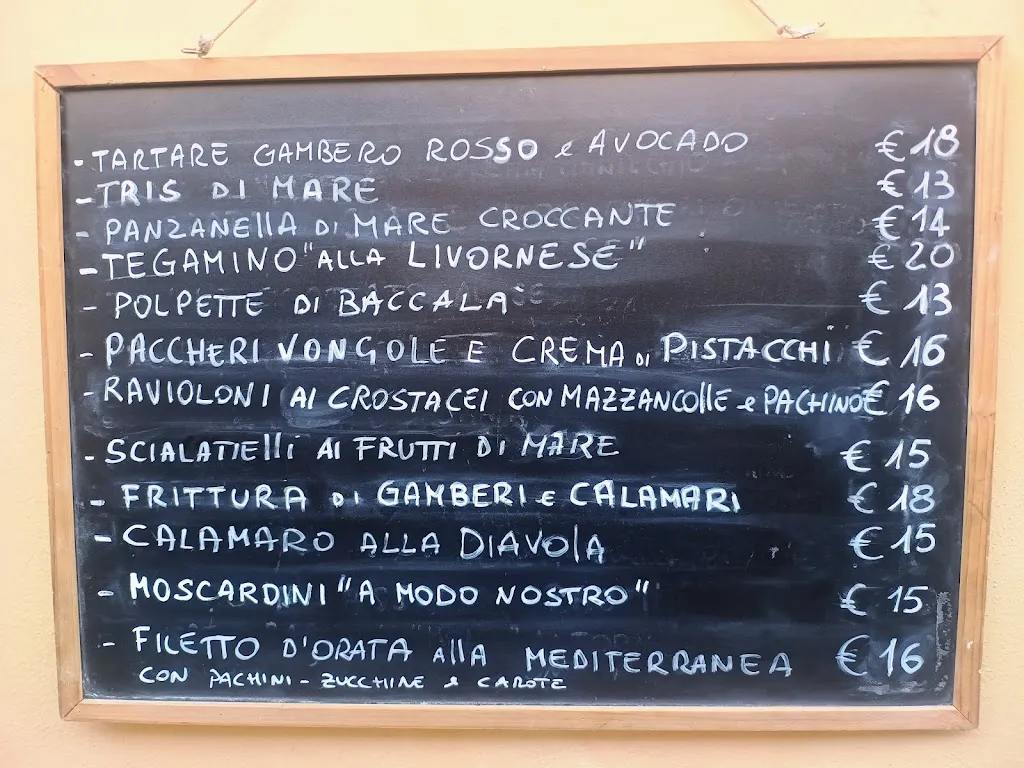 - TARTARE GAMBERO ROSSO e AVOCADO € 18
- TRIS DI MARE € 13
- PANZANEllA DI MARE CROCCANTE € 14
- TEGAMINO "ALLA LIVORNESE" € 20
- POLPETTE DI BACCALA` € 13
- PACCHERI VONGOLE E CREMA DI PISTACCHI € 16
- RAVIOLONI AI CROSTACEI CON MAZZANCOllE e PACHINO € 16
- SCIALATIElli AI FRUTTI DI MARE € 15
- FRITTURA DI GAMBERI E CALAMARI € 18
- CALAMARO ALLA DIAVOlA € 15
- MOSCARDINI "A MODO NOSTRO" € 15
- FILETTO D'ORATA AllA MEDITERRANEA € 16
CON PACHINI - ZUCCHINE e CAROTE